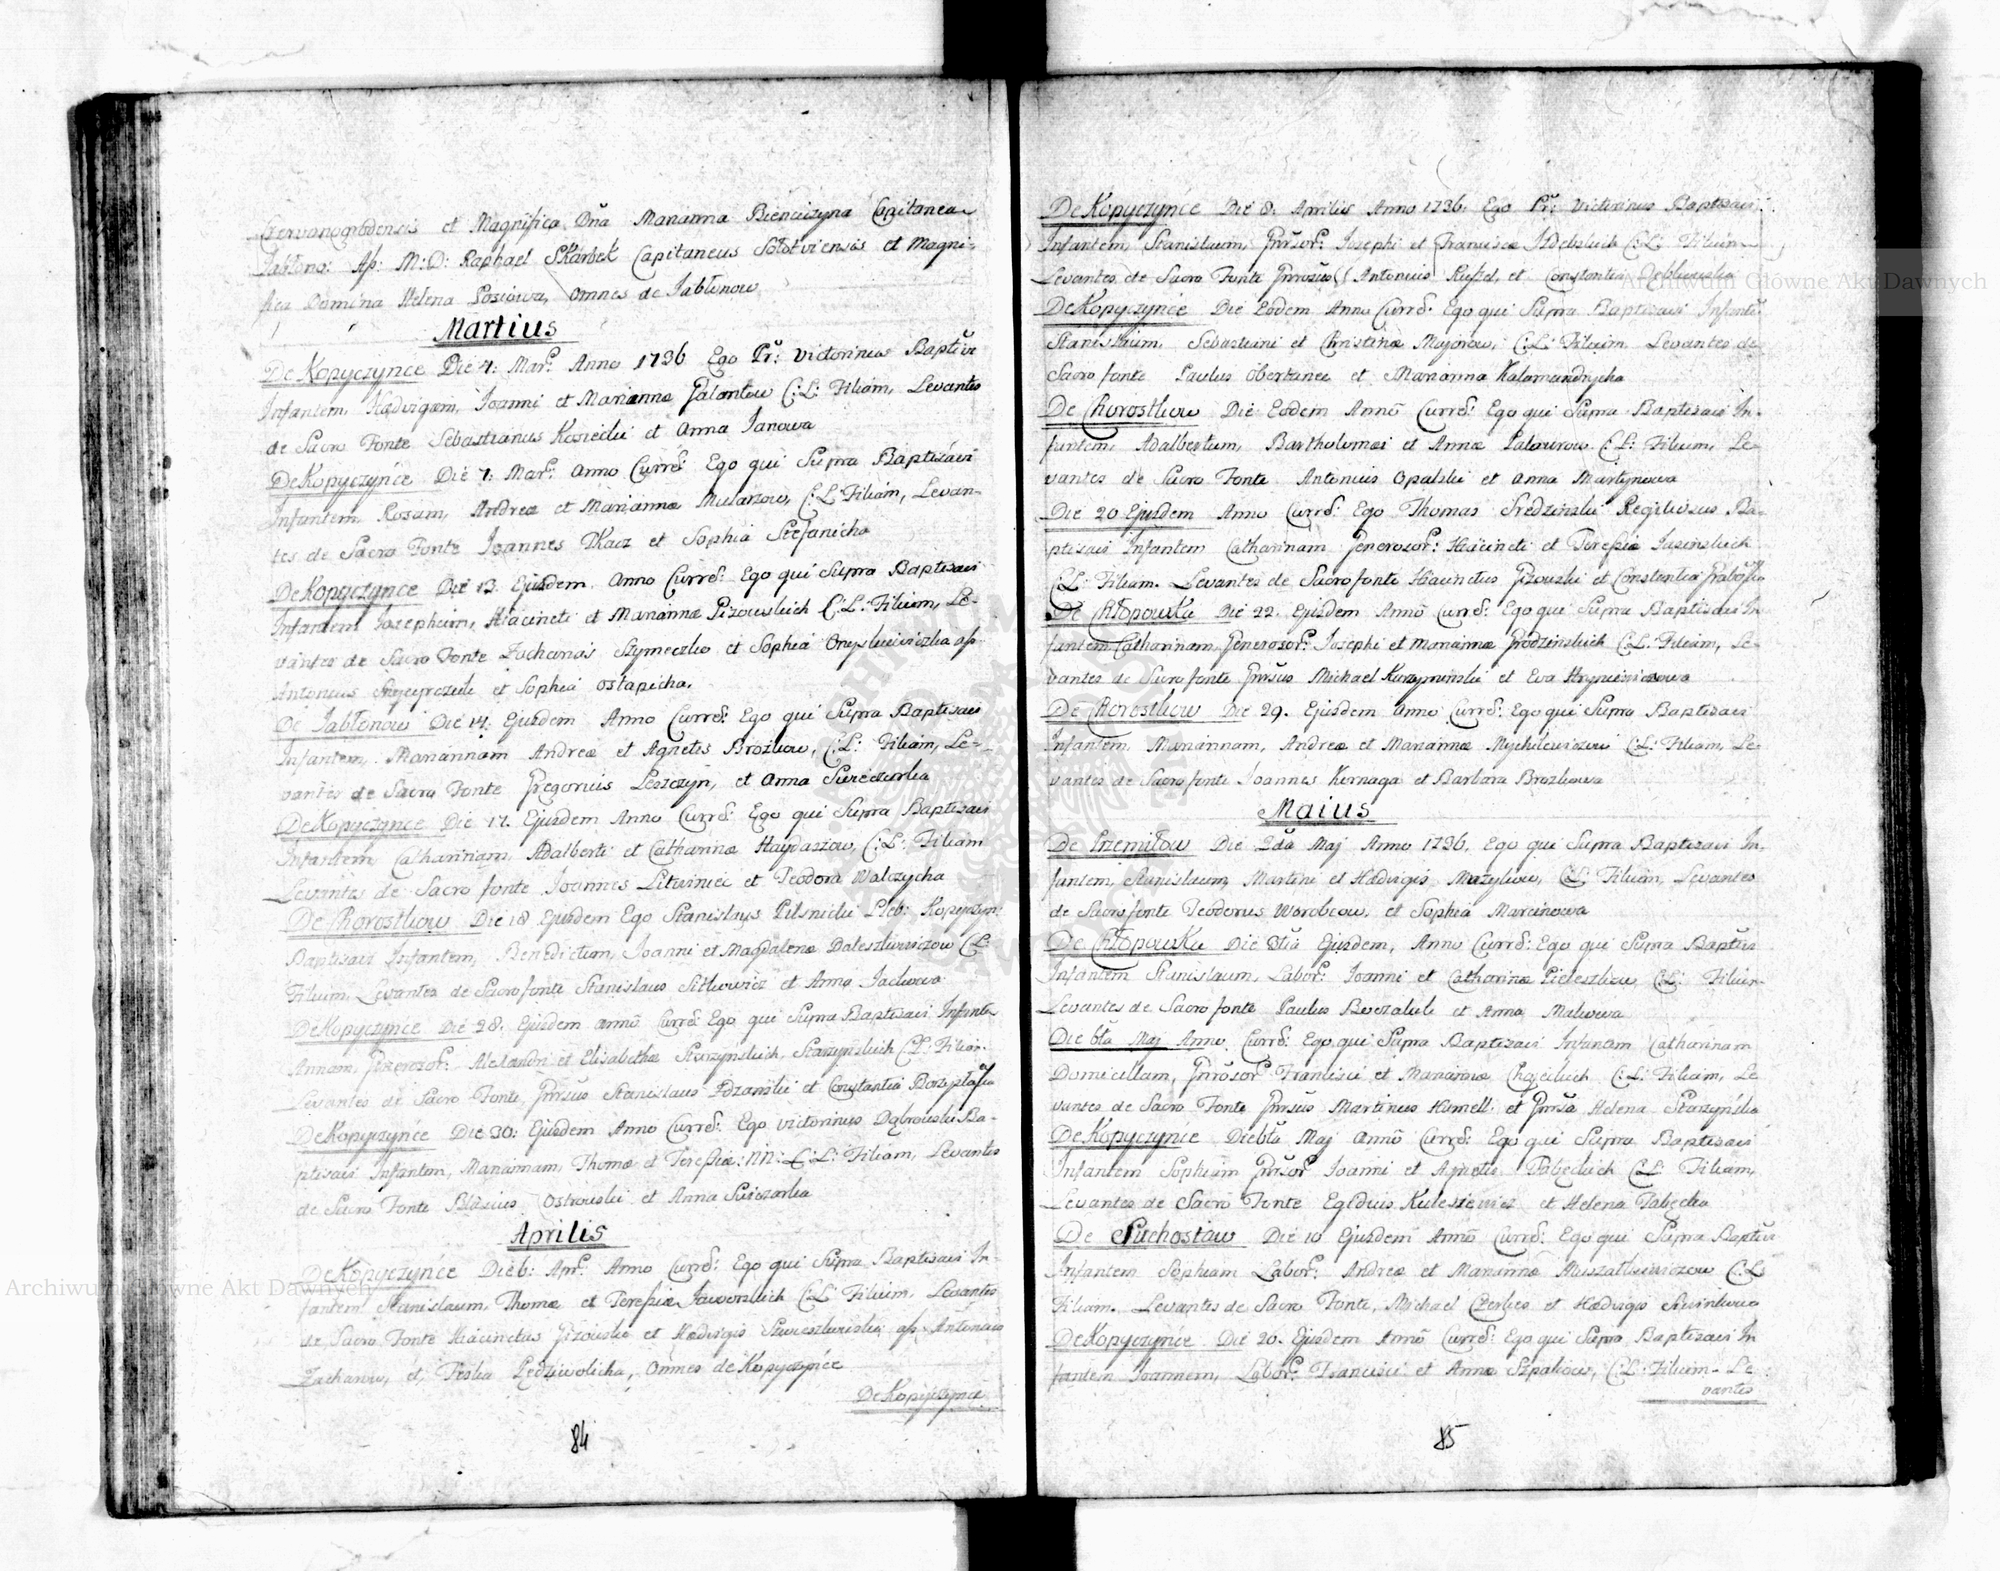 Czervonogrodensis et Magnifica Dña Marianna Bieniczyna Capitanea
Jabłono: As: M: D: Raphael Skarbek Capitaneus Sołotviensis et Magni-
fica Domina Helena Łosiowa, Omnes de Jabłonow
Martius
De Kopyczynce Die 4: Mar: Anno 1736 Ego Pr: Victorinus Baptizavi
Infantem Hedvigem, Joanni et Mariannæ Galantow C: L: Filiam, Levantes
de Sacro Fonte Sebastianus Kosiecki et Anna Janowa
De Kopyczynce Die 7: Mar: Anno Curre: Ego qui Supra Baptizavi
Infantem Rosam, Andreæ et Mariannæ Mularzow, C: L: Filiam, Levan-
tes de Sacro Fonte Joannes Tkacz et Sophia Stefanicha
De Kopyczynce Die 13. Ejusdem Anno Curre: Ego qui Supra Baptizavi
Infantem Josephum, Hiacineti et Mariannæ Pizowskich C: L: Filium, Le-
vantes de Sacro Fonte Zacharias Szymeczko et Sophia as
Antonius et Sophia Ostapicha.
De Jabłonow Die 14. Ejusdem Anno Curre: Ego qui Supra Baptizavi
Infantem Mariannam Andreæ et Agnetis Brozkow, C: L: Filiam, Le-
vantes de Sacro Fonte Gregorius Leszczyn, et Anna Swieczorka
De Kopyczynce Die 17. Ejusdem Anno Curre: Ego qui Supra Baptizavi
Infantem Catharinam Adalberti et Catharinæ Haydaszow, C: L: Filiam
Levantes de Sacro fonte Joannes Litwiniec et Teodora Walczycha
De Chorostkow Die 18 Ejusdem Ego Stanislaus Pilsnicki Pleb: Kopyczyn:
Baptizavi Infantem, Benedictum, Joanni et Magdalenæ Daleszkiewiczow C: L:
Filium, Levantes de Sacro fonte Stanislaus Sitkiewicz et Anna Jackowa
De Kopyczynce Die 28. Ejusdem Annõ Curre: Ego qui Supra Baptizavi Infante
Annam, Generosor: Alexandri et Elisabethæ Starzynskich, Starzynskich C: L: Filiam
Levantes de Sacro Fonte, Gnrsus Stanislaus et Constantia
De Kopyczynce Die 30: Ejusdem Anno Curre: Ego Victorinus Dąbrowski Ba-
ptizavi Infantem, Mariannam, Thomæ et Teresiæ: NN: C: L: Filiam, Levantes
de Sacro Fonte Blasius Ostrowski et Anna Swiczorka
Aprilis
De Kopyczynce Die 6: Apr: Anno Curre: Ego qui Supra Baptizavi In-
fantem Stanislaum, Thomæ et Teresiæ Jaworskich C: L: Filium, Levantes
de Sacro Fonte Hiacinctus Gizowski et Hedvigis as Antonius
Zacharow, et, Teskа Pędziwolicha, Omnes de Kopyczynce
De Kopyczynce
84
De Kopyczynce Die 8. Aprilis Anno 1736. Ego Pr: Victorinus Baptizavi
Infantem, Stanislaum, Gnrsor: Josephi et Franciscæ Izdebskich C: L: Filium
Levantes de Sacro Fonte Gnrosus Antonius et Constantia
De Kopyczynce Die Eodem Anno Curre: Ego qui Supra Baptizavi Infante
Stanislaum, Sebastiani et Christinæ Majorow, C: L: Filium Levantes de
Sacro fonte Paulus Obertaniec et Marianna Kalamandrycha
De Chorostkow Die Eodem Annõ Curre: Ego qui Supra Baptizavi In-
fantem, Adalbertum, Bartholomæi et Annæ C: L: Filium, Le-
vantes de Sacro Fonte Antonius Opalski et Anna Martynowa
Die 20 Ejusdem Anno Curre: Ego Thomas Sredzinski Regiliosus Ba-
ptizavi Infantem Catharinnam Generosor: Hiacineti et Teresiæ Jasinskich
C: L: Filiam. Levantes de Sacro fonte Hiacinctus Gizowski et Constantia
De Chłopowka Die 22. Ejusdem Annõ Curre: Ego qui Supra Baptizavi In-
fantem Catharinnam Generosor: Josephi et Mariannæ Grodzinskich C: L: Filiam, Le-
vantes de Sacro fonte Gnrsus Michael et Eva Hryniewiczowa
De Chorostkow Die 29. Ejusdem Anno Curre: Ego qui Supra Baptizavi
Infantem Mariannam, Andreæ et Mariannæ Mychilewiczow C: L: Filiam, Le-
vantes de Sacro fonte Joannes Kernaga et Barbara Brozkowa
Maius
De Przemiłow Die 2da Maj Anno 1736, Ego qui Supra Baptizavi In-
fantem, Stanislaum, Martini et Hedvigis Mazykow, C: L: Filium, Levantes
de Sacro fonte Teodorus Worobcow, et Sophia Marcinowa
De Chłopowka Die 3tia Ejusdem, Anno Curre: Ego qui Supra Baptizavi
Infantem Stanislaum, Labor: Joanni et Catharinæ Pieleszkow C: L: Filium
Levantes de Sacro fonte Paulus et Anna
Die 6ta Maj Anno Curre: Ego qui Supra Baptizavi Infanam Catharinam
Domicellam, Gnrosor: Francisci et Mariannæ Chojeckich C: L: Filiam, Le
vantes de Sacro Fonte Gnrsus Martinus Humell et Gnrsa Helena Starzyńska
De Kopyczynce Die 6ta Maj Annõ Curre: Ego qui Supra Baptizavi
Infantem Sophiam Gnrsor: Joanni et Agnetis Tabęckich C: L: Filiam,
Levantes de Sacro Fonte Egidius Kuleszewicz et Helena Tabęcka
De Suchostaw Die 10 Ejusdem Annõ Curre: Ego qui Supra Baptizavi
Infantem Sophiam Labor: Andreæ et Mariannæ C: L:
Filiam. Levantes de Sacro Fonte, Michael et Hedvigis
De Kopyczynce Die 20. Ejusdem Annõ Curre: Ego qui Supra Baptizavi In
fantem Joannem, Labor: Francisci et Annæ Szpakow, C: L: Filium- Le
vantes
85
Archiwum Główne Akt Dawnych
Archiwum Główne Akt Dawnych